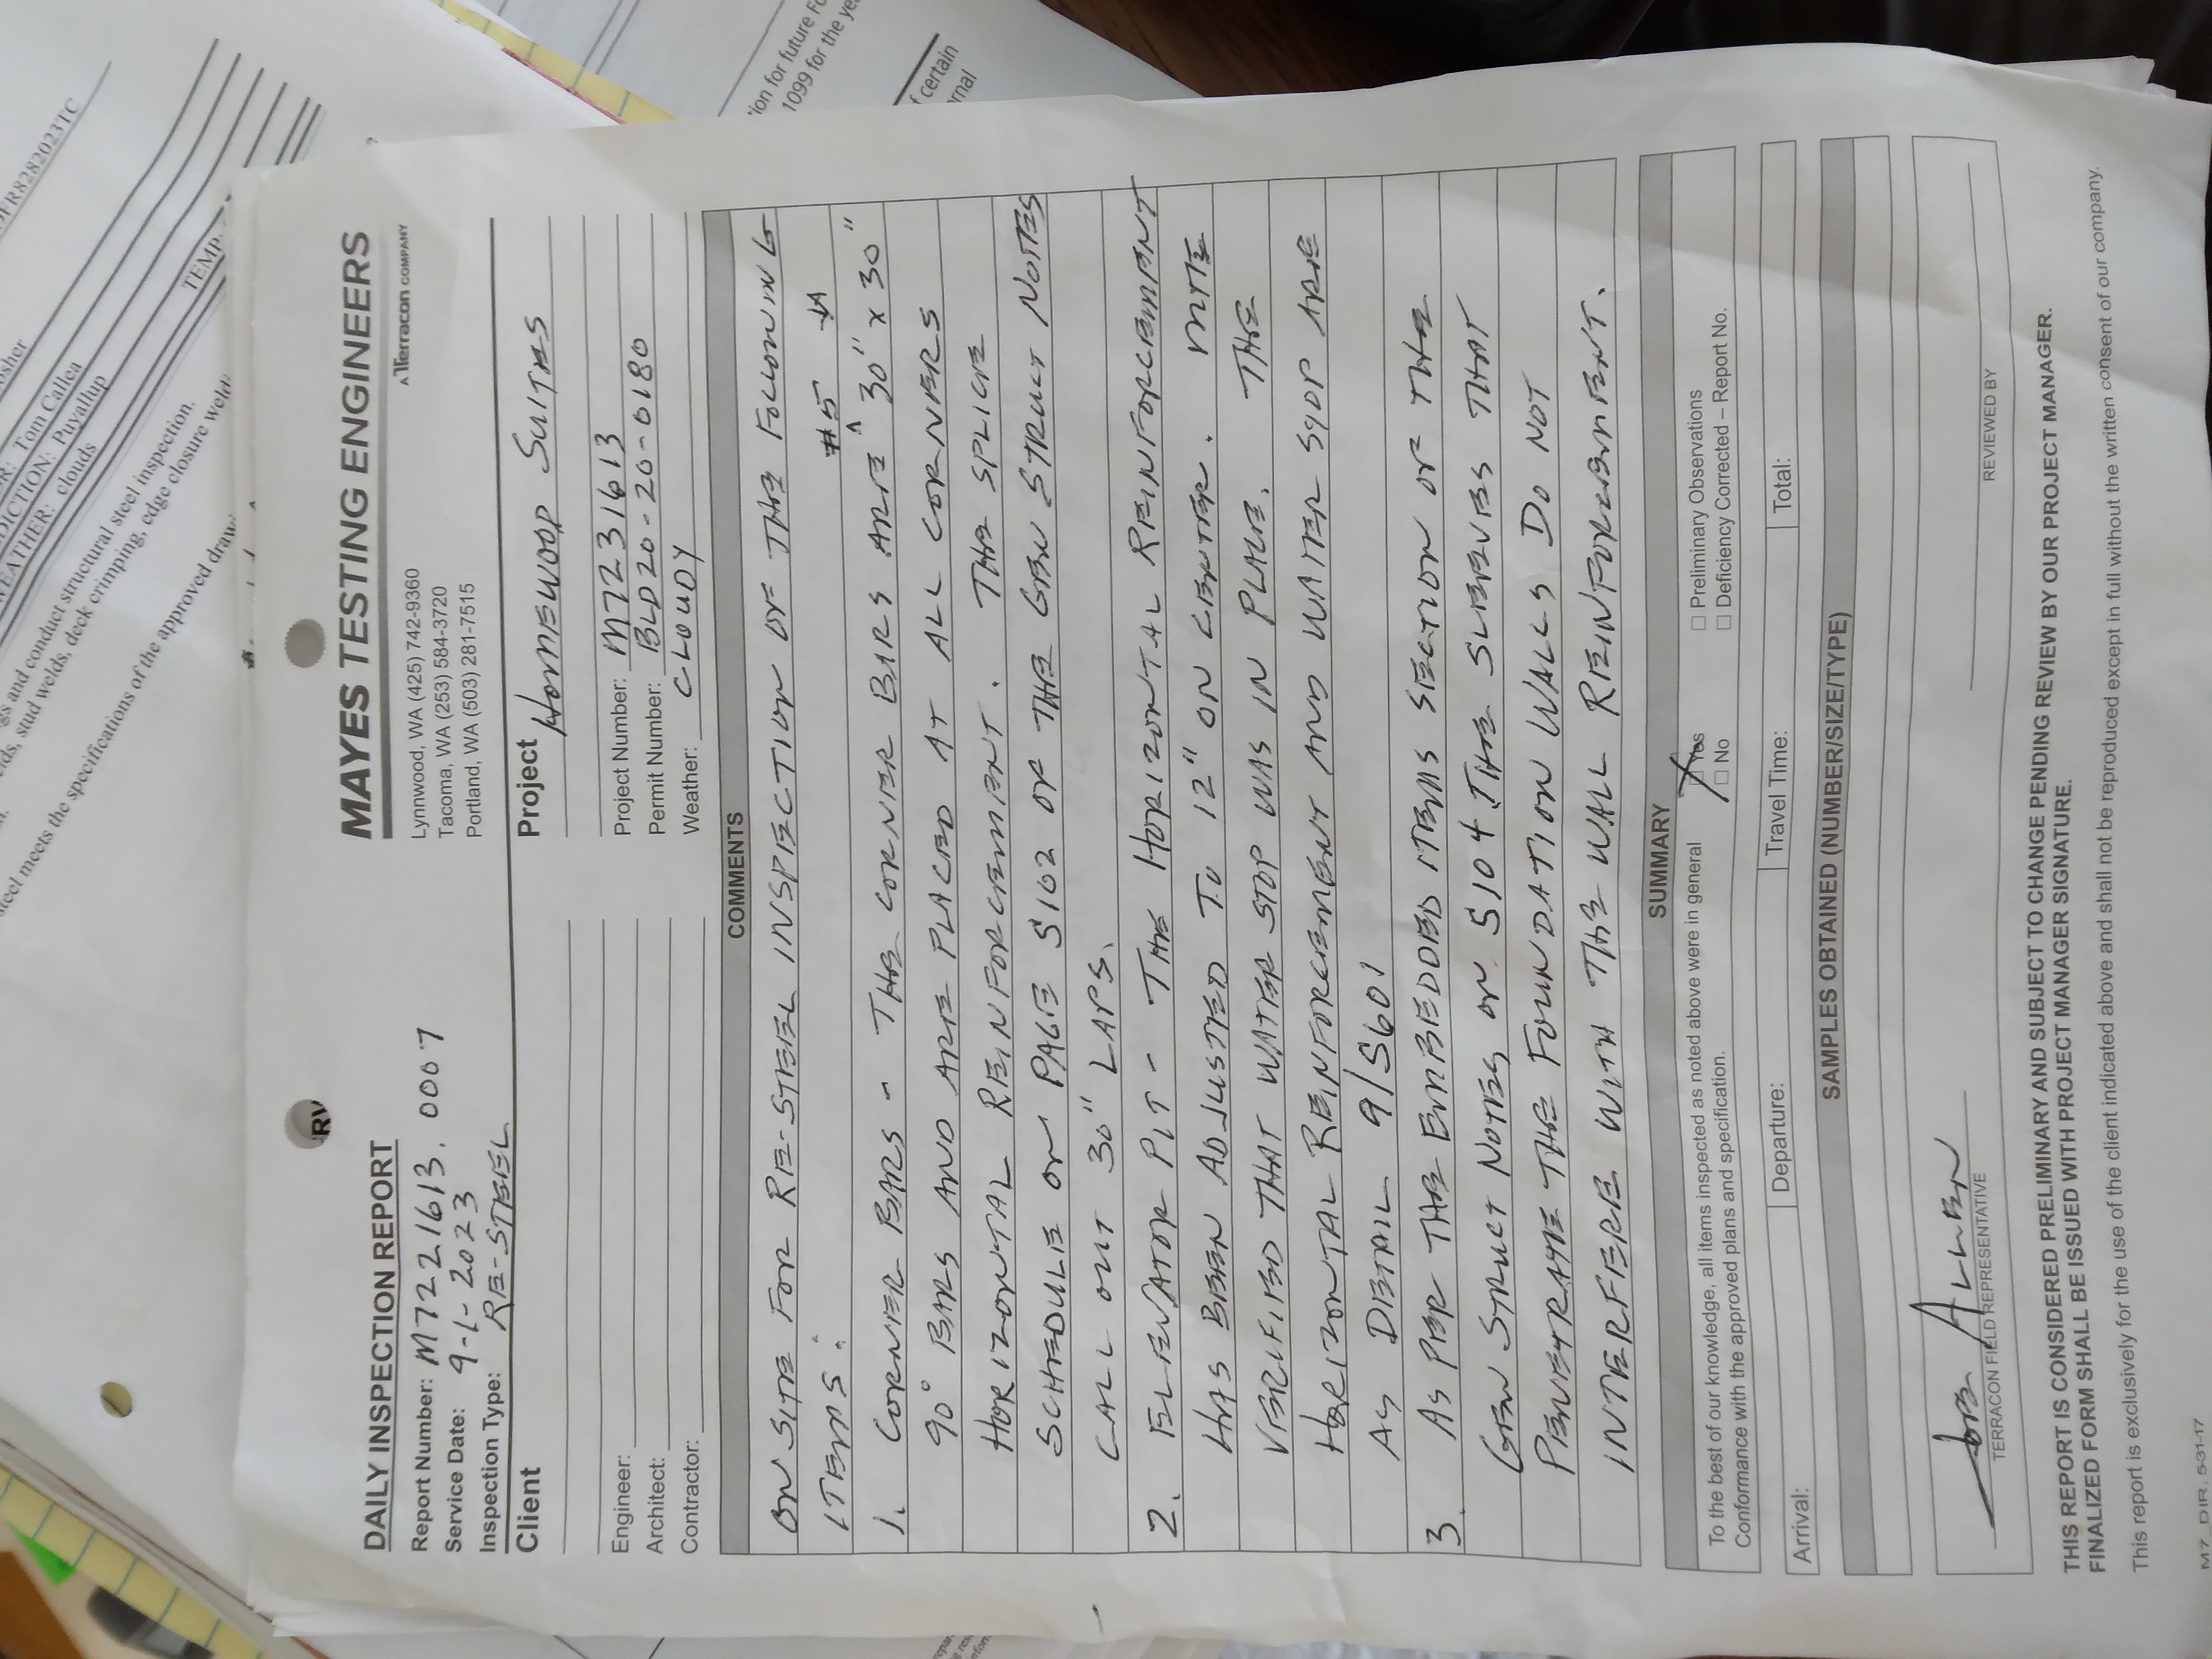 DAILY INSPECTION REPORT
Report Number: M7221613.0007
Service Date: 9-1-2023
Inspection Type: RE-STEEL
MAYES TESTING ENGINEERS
A Terracon COMPANY
Lynnwood, WA (425) 742-9360
Tacoma, WA (253) 584-3720
Portland, WA (503) 281-7515
Client
Engineer:
Architect:
Contractor:
Project
HOMEWOOD SUITES
Project Number: M7231613
Permit Number: BLD20-20-0180
Weather: CLOUDY
COMMENTS
ON SITE FOR RE-STEEL INSPECTION OF THE FOLLOWING
ITEMS:
#5
1. CORNER BARS - THE CORNER BARS ARE ^ 30" x 30"
90° BARS AND ARE PLACED AT ALL CORNERS
HORIZONTAL REINFORCEMENT. THE SPLICE
SCHEDULE ON PAGE S102 OF THE GEN STRUCT NOTES
CALL OUT 30" LAPS.
2. ELEVATOR PIT - THE HORIZONTAL REINFORCEMENT
HAS BEEN ADJUSTED TO 12" ON CENTER. MTE
VERIFIED THAT WATER STOP WAS IN PLACE. THE
HORIZONTAL REINFORCEMENT AND WATER STOP ARE
AS DETAIL 9/S601
3. AS PER THE EMBEDDED ITEMS SECTION OF THE
GEN STRUCT NOTES ON S104 THE SLEEVES THAT
PENETRATE THE FOUNDATION WALLS DO NOT
INTERFERE WITH THE WALL REINFORCEMENT.
SUMMARY
To the best of our knowledge, all items inspected as noted above were in general
Conformance with the approved plans and specification.
☒ Yes
☐ No
☐ Preliminary Observations
☐ Deficiency Corrected – Report No.
Arrival:
Departure:
Travel Time:
Total:
SAMPLES OBTAINED (NUMBER/SIZE/TYPE)
ALLEN
TERRACON FIELD REPRESENTATIVE
REVIEWED BY
THIS REPORT IS CONSIDERED PRELIMINARY AND SUBJECT TO CHANGE PENDING REVIEW BY OUR PROJECT MANAGER.
FINALIZED FORM SHALL BE ISSUED WITH PROJECT MANAGER SIGNATURE.
This report is exclusively for the use of the client indicated above and shall not be reproduced except in full without the written consent of our company.
M7_DIR, 5-31-17
FR8282023TC
osher
Tom Callea
DICTION: Puyallup
WEATHER: clouds
TEMP.
gs and conduct structural steel inspection.
elds, stud welds, deck crimping, edge closure weld
steel meets the specifications of the approved draw
tion for future
1099 for the ye
f certain
rnal